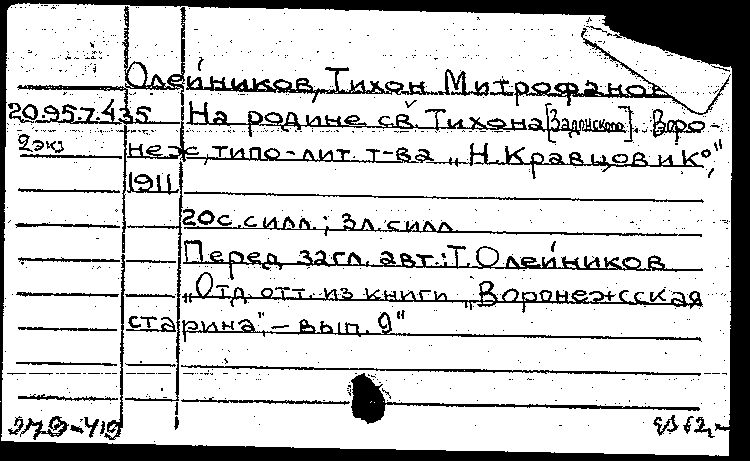 Олейников, Тихон Митрофанов
20.95.7.435 На родине св. Тихона [Задонского]. Воро-
2 экз неж, типо-лит. т-ва „Н. Кравцов и К°",
1911
20 с. илл.; 3 л. илл.
Перед загл. авт.: Т. Олейников
„Отд. отт. из книги „Воронежсская
старина", – вып. 9"